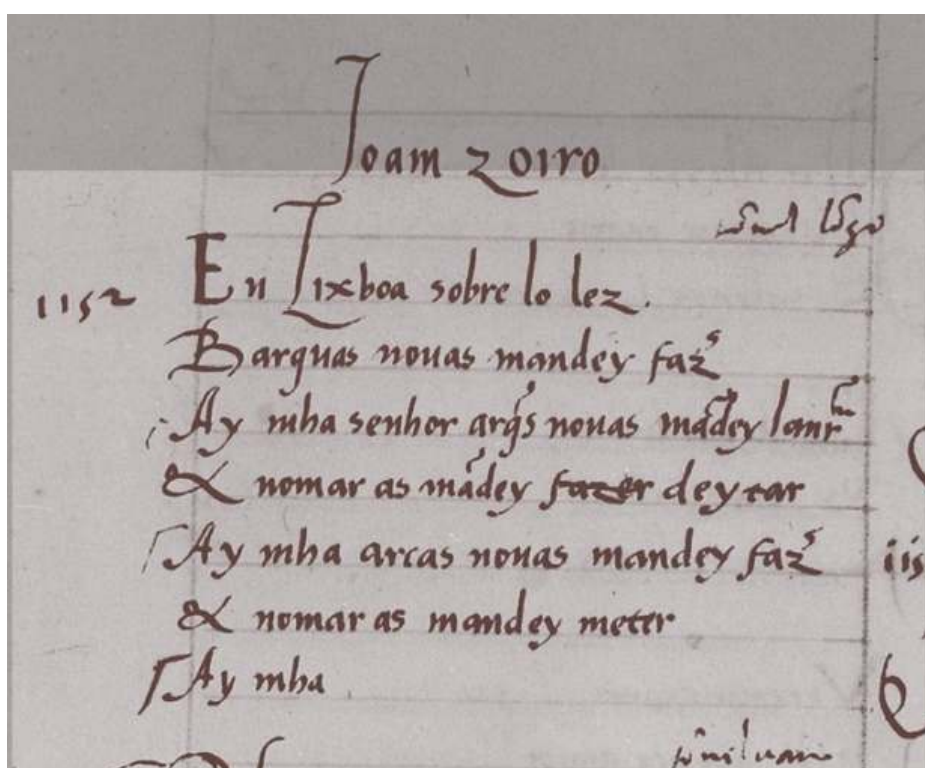 Joam zoiro
1152 En Lixboa sobre lo lez.
Barquas nouas mandey faz
Ay mha senhor arqs nouas mãdey lanr
& nomar as mãdey fazer deytar
Ay mha arcas nouas mandey faz
& nomar as mandey meter
Ay mha
iis